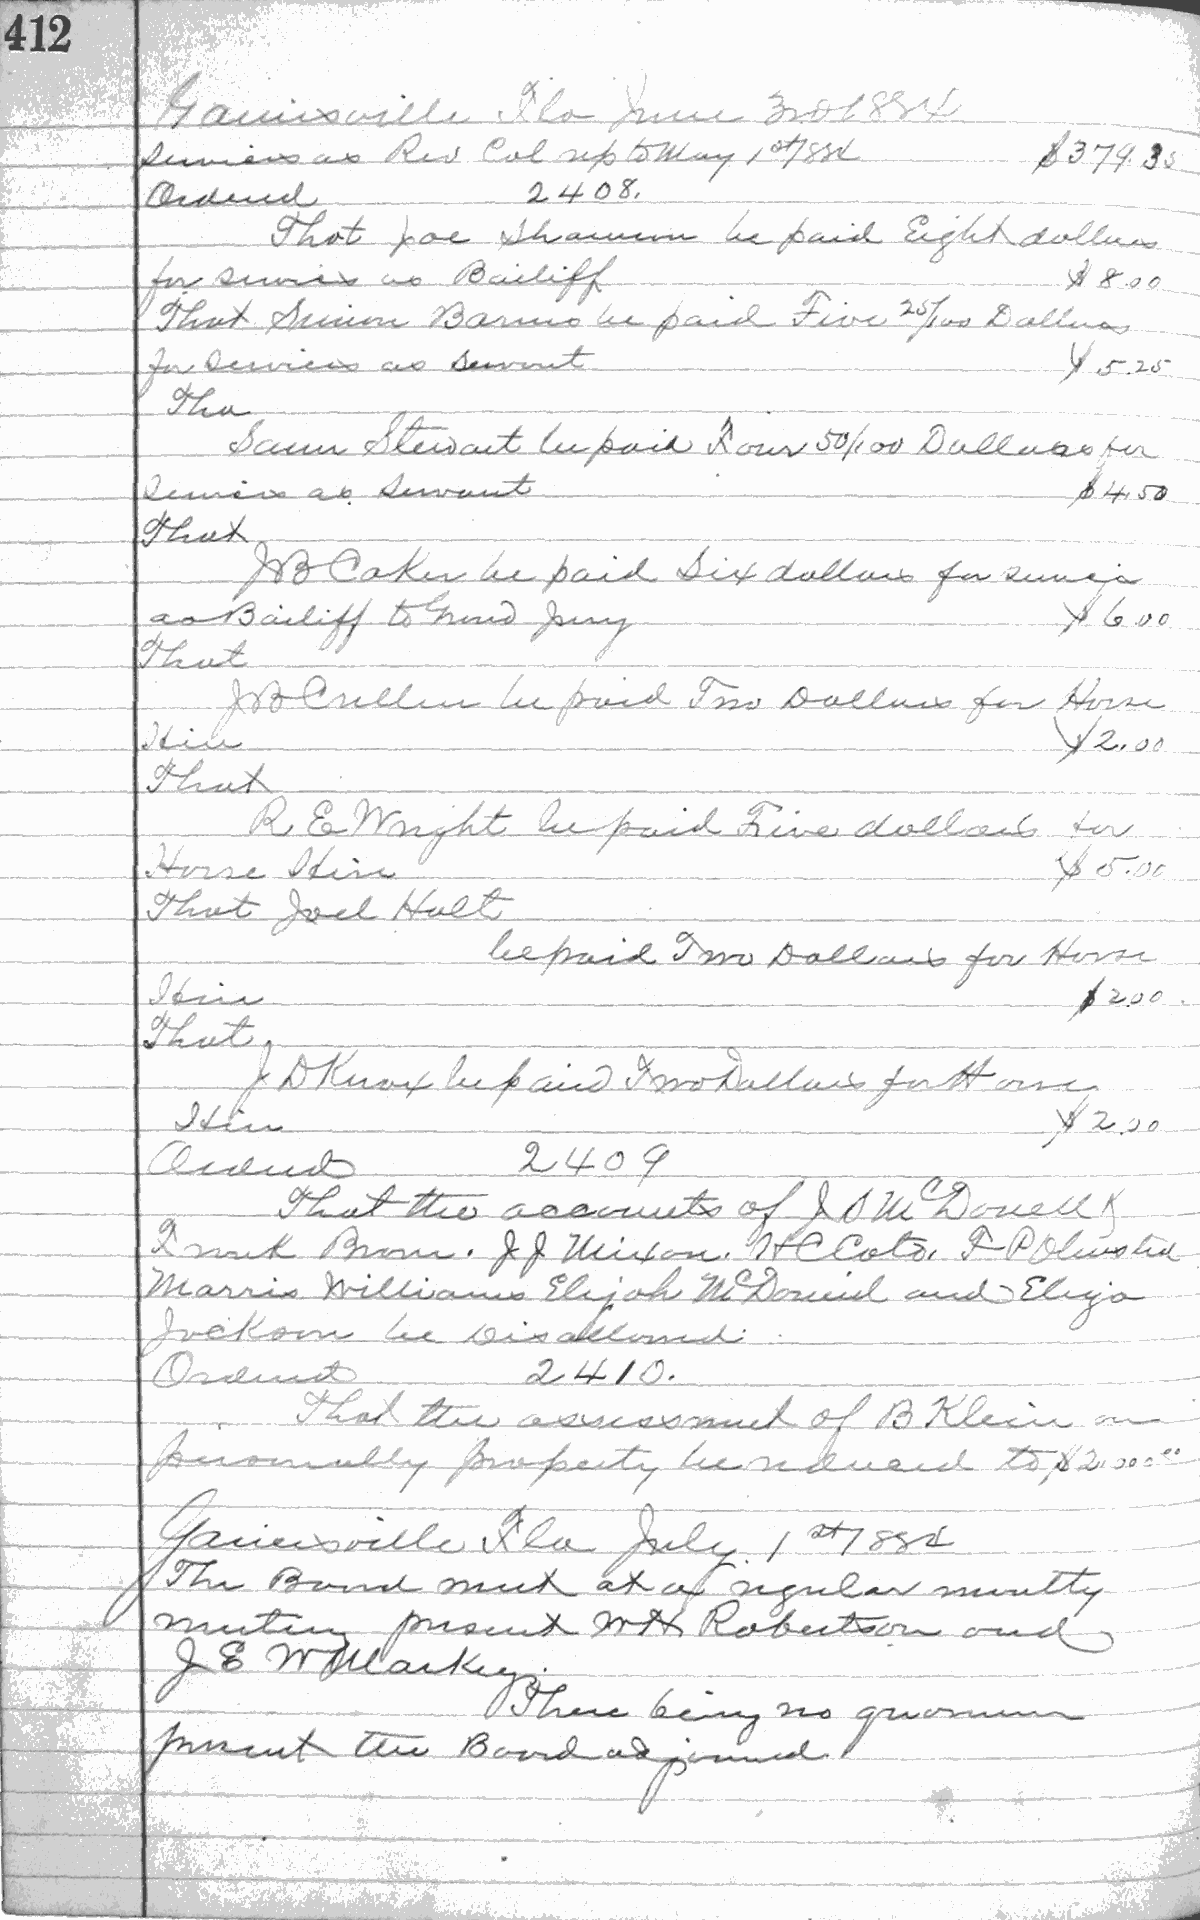 412
Gainesville Fla June 3rd 1884
Services as Rev Col up to May 1st 1884 $379.35
Ordered 2408.
That Joe Shannon be paid Eight dollars
for services as Bailiff $8.00
That Simon Barnes be paid Five 25/100 Dollars
for services as servant $5.25
Tha
Sam Stewart be paid Four 50/100 Dollars for
services as servant $4.50
That
JB Coker be paid Six dollars for service
as Bailiff to Grand Jury $6.00
That
JB be paid Two Dollars for Horse
Hire $2.00
That
R. E Wright be paid Five dollars for
Horse Hire $5.00
That Joel Holt
be paid Two Dollars for Horse
Hire $2.00
That
J D Knox be paid Two Dollars for Horse
Hire $2.00
Ordered 2409
That the accounts of J D McDonell
Frank Brown. J J Mixon. H C Coto. F P Olmsted
Marris Williams Elijah McDaniel and Eliza
Jackson be Disallowed.
Ordered 2410.
That the assessment of B Klein on
personally property be reduced to $2.000.00
Gainesville Fla July. 1st 1884
The Board meet at a regular montly
meeting present W H Robertson and
J E W Markey.
There being no quorum
present the Board adjourned.